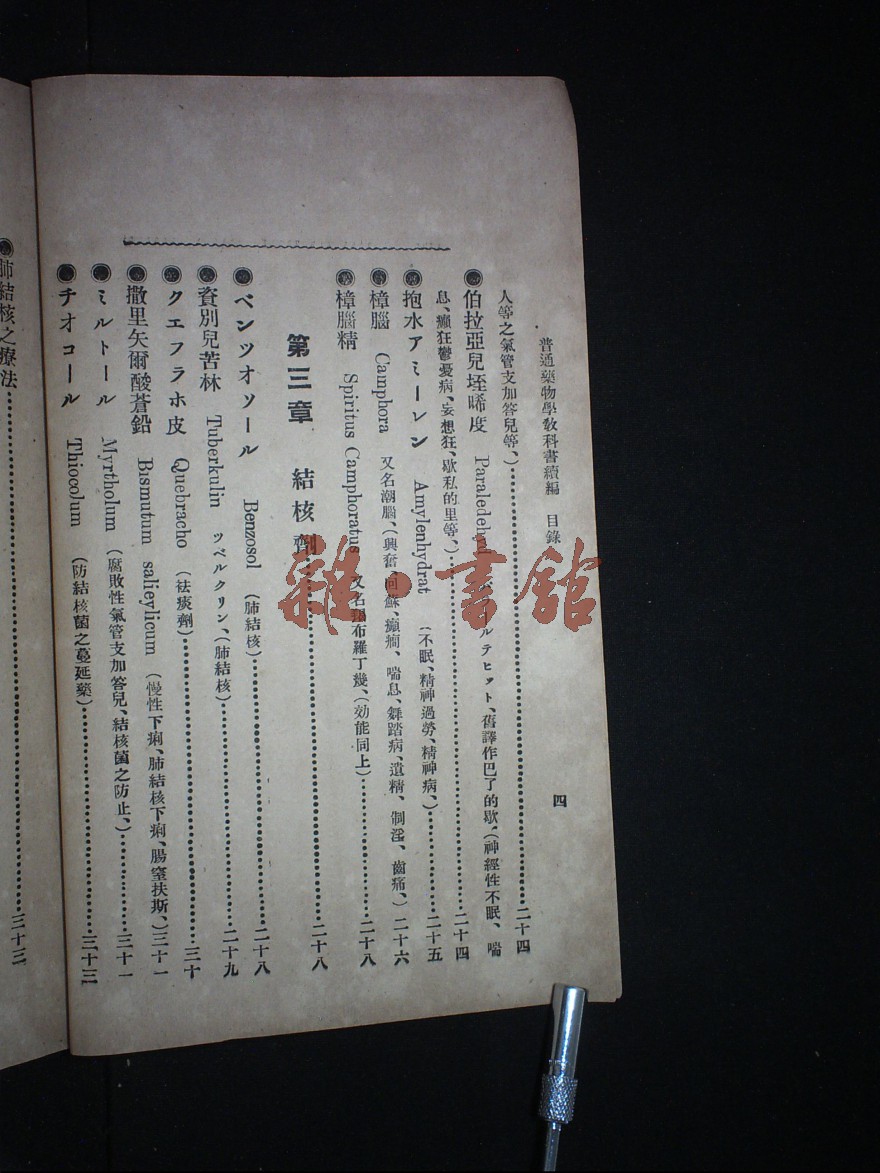 普通藥物學教科書續編　目錄　四
人等之氣管支加答兒等、)……二十四
伯拉亞兒垤唏度　Paraledehyd　ルテヒット、舊譯作巴了的歇、(神經性不眠、喘
息、癲狂鬱憂病、妄想狂、歇私的里等、)……二十四
抱水アミーレン　Amylenhydrat　(不眠、精神過勞、精神病、)……二十五
樟腦　Camphora　又名潮腦、(興奮、回蘇、癲癇、喘息、舞踏病、遺精、制淫、齒痛、)二十六
樟腦精　Spiritus Camphoratus　又名 布羅丁幾、(効能同上)……二十八
第三章　結核劑……二十八
ベンツオソール　Benzosol　(肺結核)……二十八
資別兒苦林　Tuberkulin　ツベルクリン、(肺結核)……二十九
クエフラホ皮　Quebracho　(袪痰劑)……三十
撒里矢爾酸蒼鉛　Bismutum salieylicum　(慢性下痢、肺結核下痢、腸窒扶斯、)三十一
ミルトール　Myrtholum　(腐敗性氣管支加答兒、結核菌之防止、)……三十一
チオコール　Thiocolum　(防結核菌之蔓延藥)……三十三
肺結核之療法……三十三
雜·書館